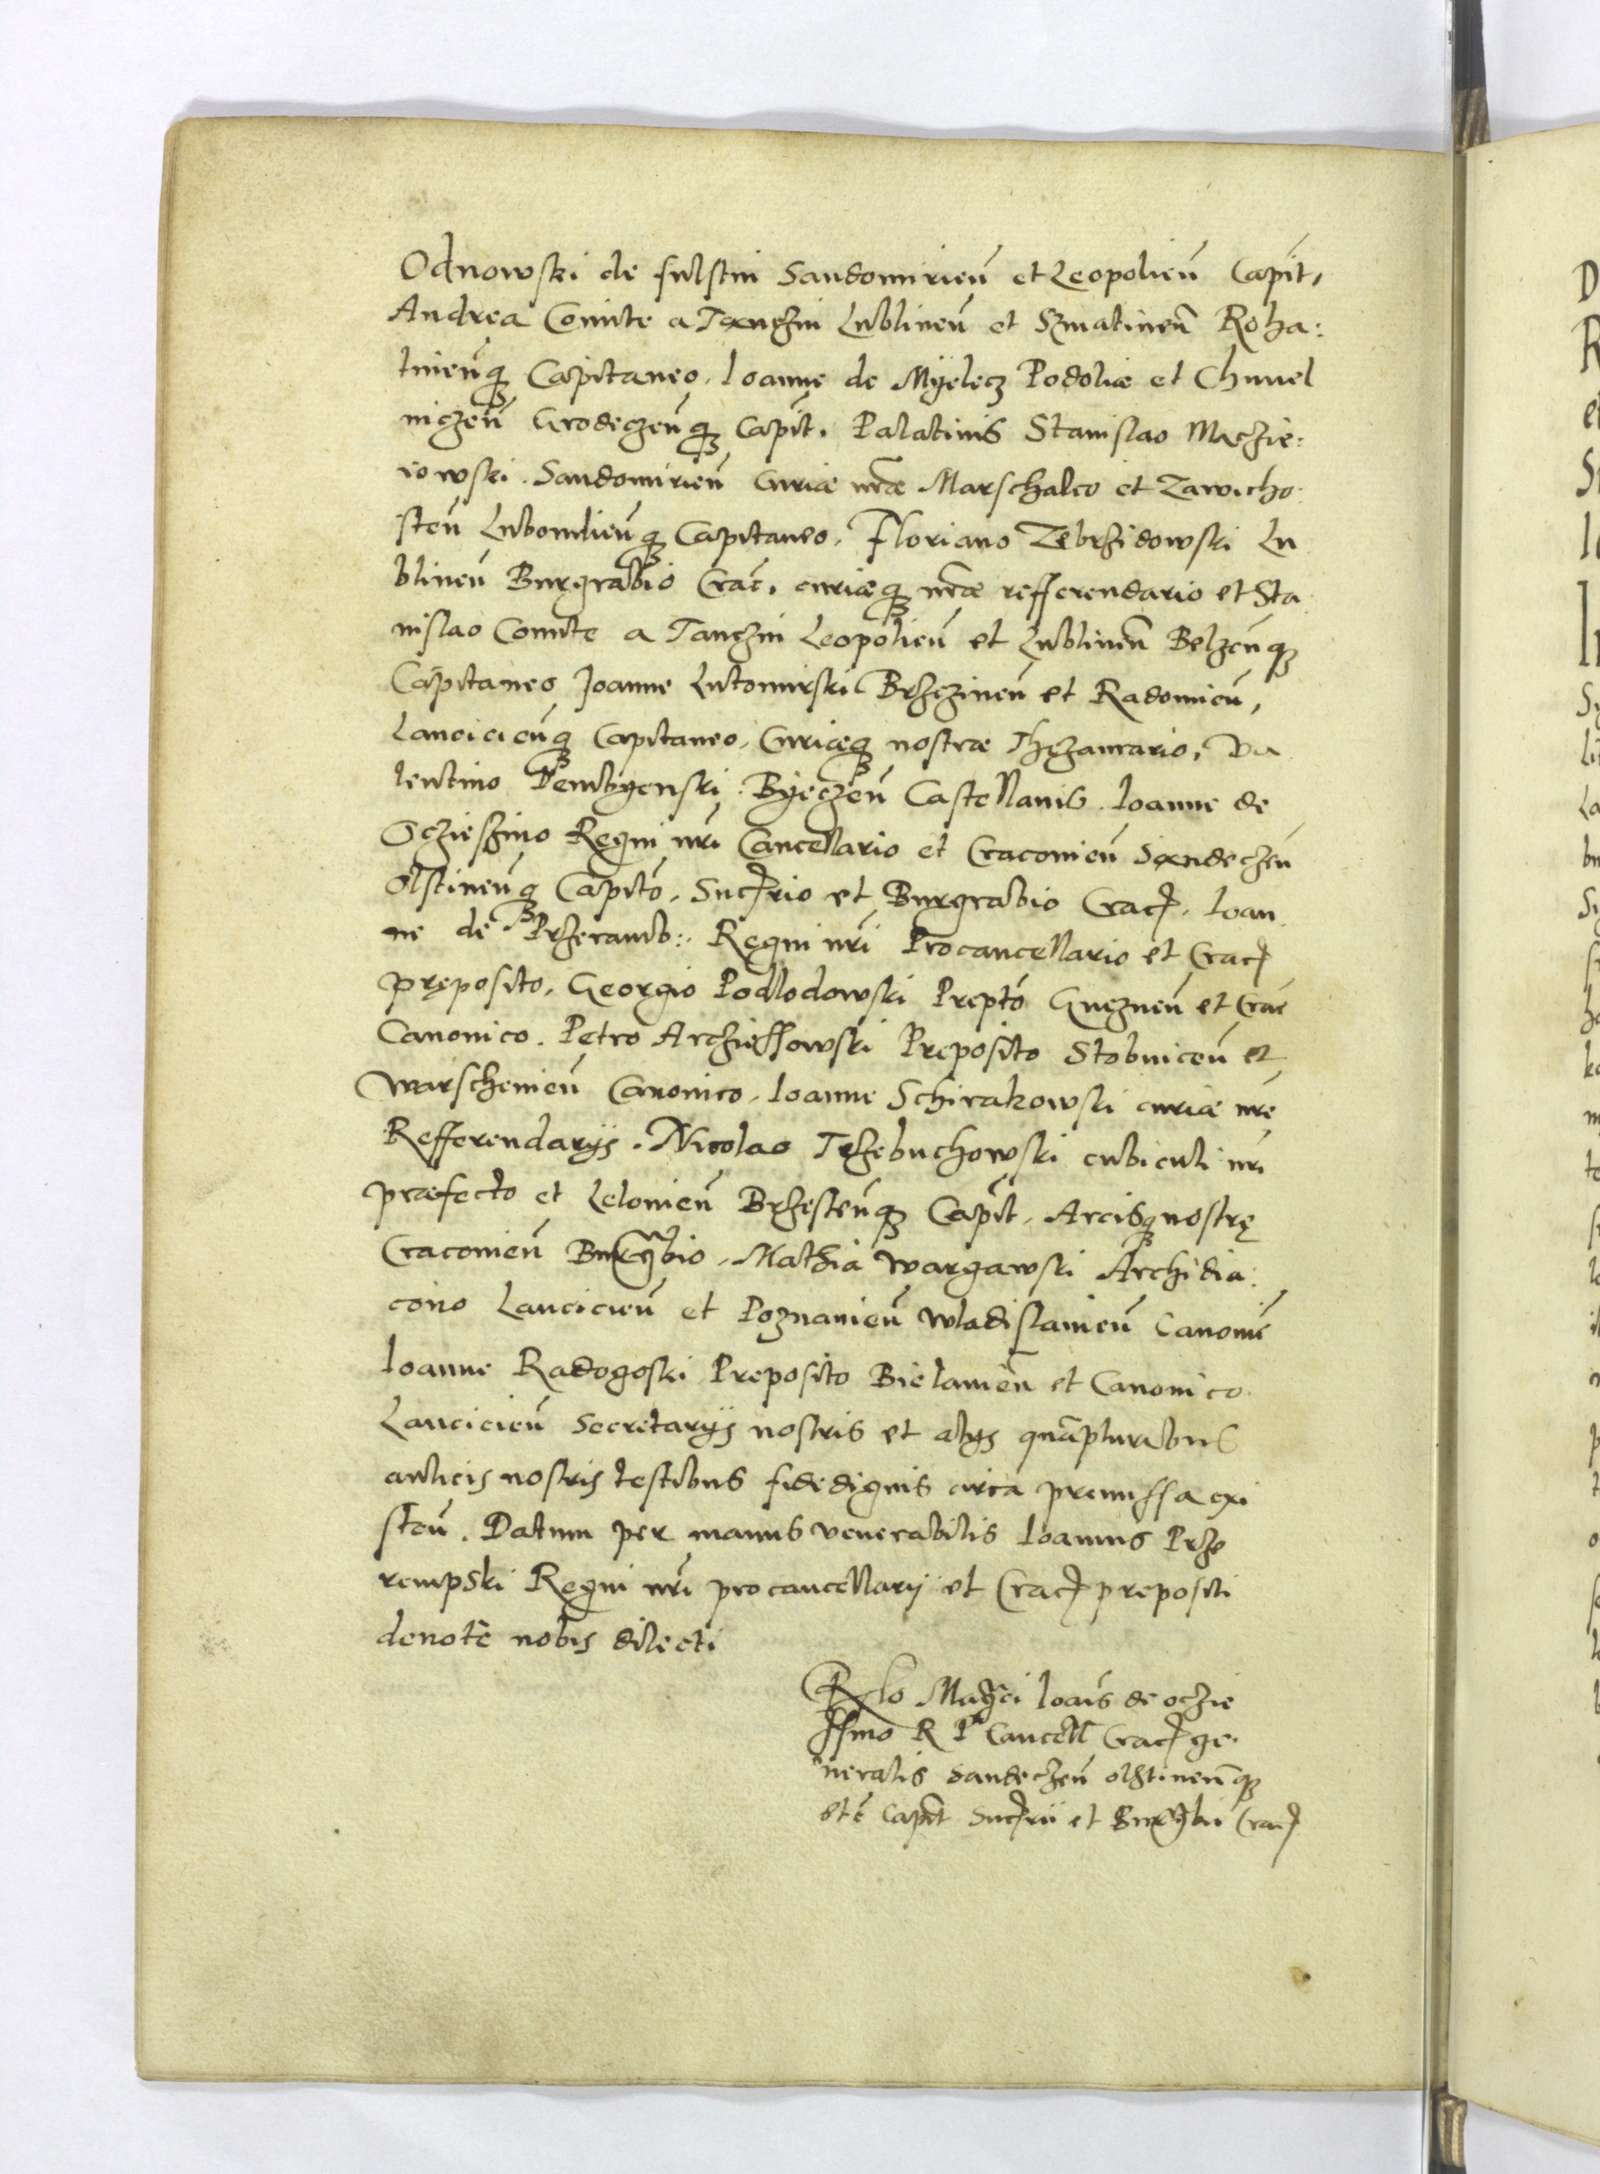 Odnowski de fulstin Sandomirien̄ et Leopolien̄ Capit,
Andrea Comite a Tęnczin Lublinen̄ et Szniatinen̄ Roha:
tinenq̃ Capitaneo. Ioanne de Myelecz Podoliæ et Chmel
niczen̄ Grodeczenq̃ Capit. Palatinis Stanislao Maczie:
iowski. Sandomirien̄ Curiæ nr̃æ Marschalco et Zawicho:
sten̄ Lubomlienq̃ Capitaneo. Floriano Zebrzidowski Lu
blinen̄ Burgrabio Crac̃. curiæq̃ nr̃æ refferendario et Sta
nislao Comite a Tanczin Leopolien̄ et Lublinen̄ Belzenq̃
Capitaneo Joanne Lutomirski Brzezinen̄ et Radomien̄,
Lancicienq̃ Capitaneo. Curiæq̃ nostræ Thezaurario, Va
lentino Dembyenski. Byeczen̄ Castellanis. Ioanne de
Oczieszino Regni nr̃i Cancellario et Cracovien̄ Sandeczen̄
Olstinenq̃ Capitõ. Succ̃rio et Burgrabio Crac̃. Ioan
ne de Przeramb: Regni nr̃i Procancellario et Crac̃
pręposito. Georgio Podlodowski Preptõ Gneznen̄ et Crac̃
Canonico. Petro Arczieffowski Preposito Stobnicen̄ et
Warschevien̄ Canonico. Ioanne Schirakowski curiæ nr̃ę
Refferendarijs. Nicolao Trzebuchowski cubiculi nr̃i
præfecto et Lelovien̄ Brzestenq̃ Capit̃. Arcisq̃ nostrę
Cracovien̄ Burg̃bio. Mathia Wargawski Archidia:
cono Lancicien̄ et Poznanien̄ Wladislavien̄ Canonic̃
Ioanne Radogoski Preposito Bielavien̄ et Canonico
Lancicien̄ Secretarijs nostris et alijs quãpluribus
aulicis nostris testibus fidedignis circa premissa exi
sten̄. Datum per manus venerabilis Ioannis Prze
rempski Regni nr̃i procancellarij et Crac̃ prepositi
devotẽ nobis dilecti
Rl̃o Mag̃ci Ioañis de oczie
ssino R P Cancell̃ Crac̃ ge:
neralis Sandeczen̄ olstinenq̃
etc̃ Capit̃ Succ̃rii et Burg̃bii Crac̃